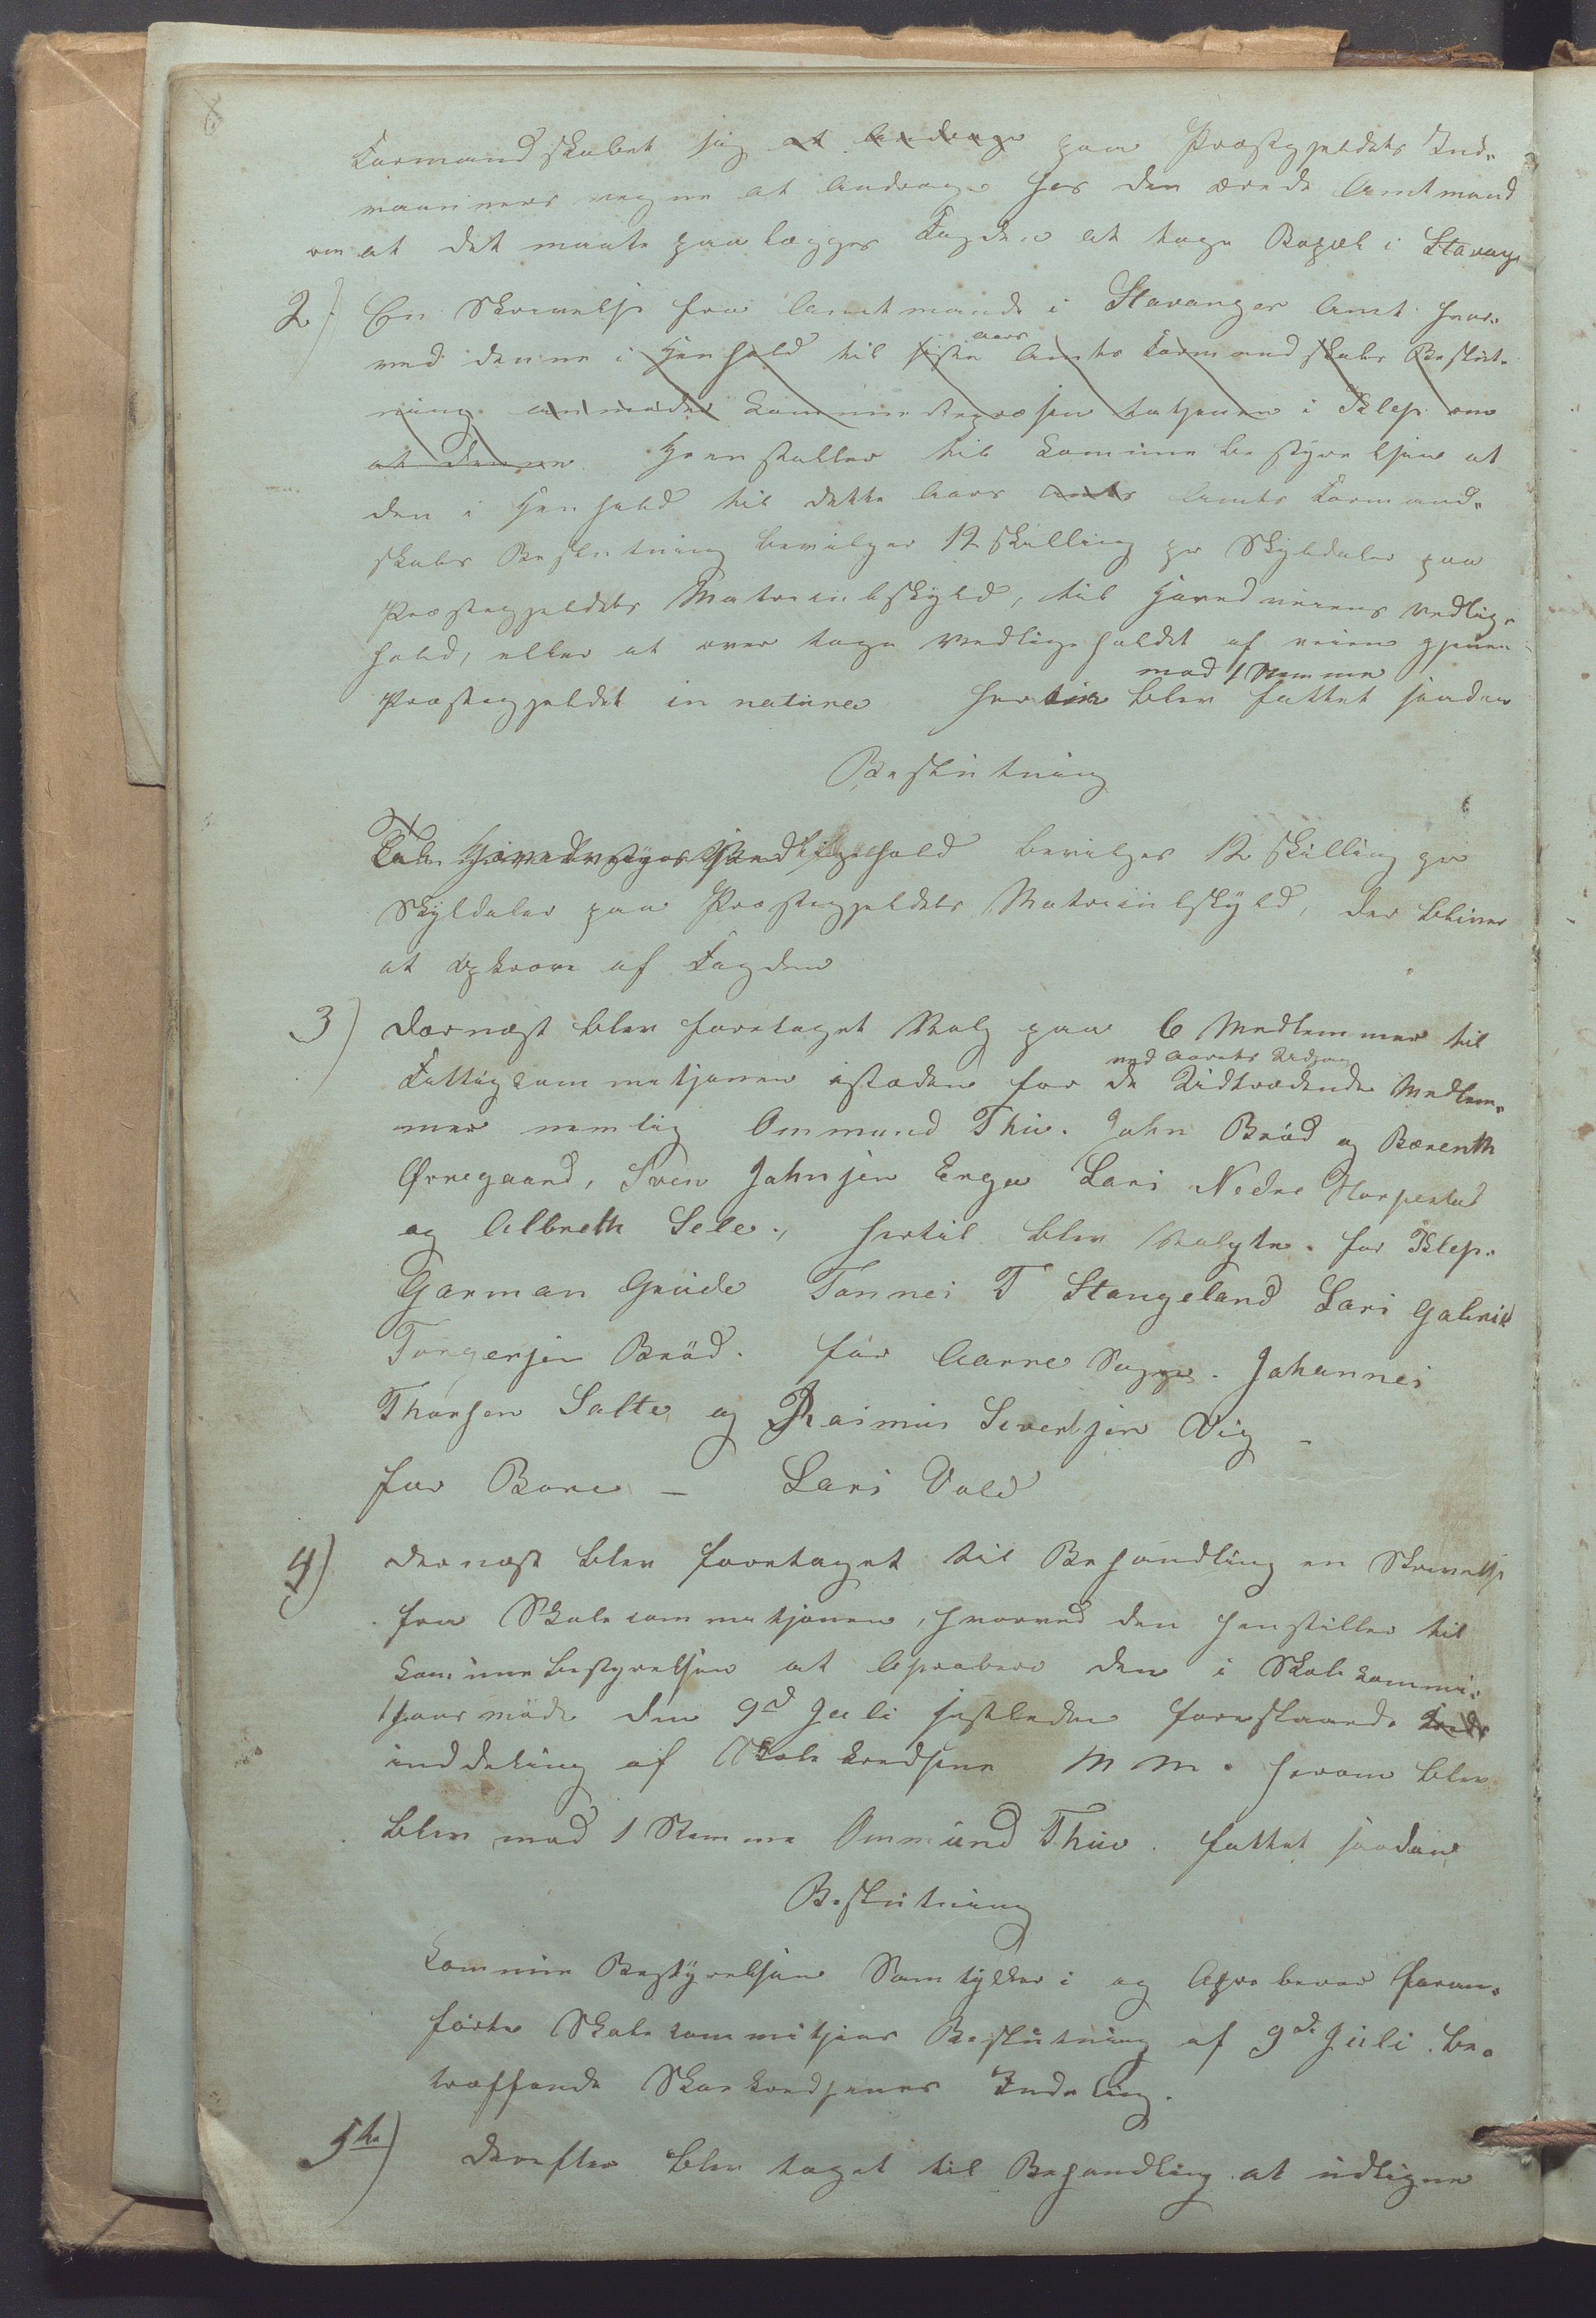 Formandskabet sig at andrage paa Præstegjeldets Ind-
vaaneres vegne at andrage hos den ærede Amtmand
om at det maate paalægges Fogden at tage Bopæl i Stavang
2) En Skrivelse fra Amtmande i Stavanger Amt hvor-
ved denne i Henhold til siste Aars Amts Formandskabs Beslut-
ning anmoder Kommunerepræsentatjonen i Klep om
at denne. Henstaller til Kommunebestyrelsen at
den i Henhold til dette Aars Amts Amts Formand-
skabs Beslutning bevilger 12 Skilling pr Skyldaler paa
Præstegjeldets Matriculskyld, til Hovedveiens vedlige-
hold, eller at overtage Vedligeholdet af veien gjenem
Præstegjeldet in natura herom blev mod 1 Stemme fattet saadan
Beslutning
Til Hovedveiens Vedligehold bevilges 12 Skilling pr
Skyldaler paa Præstegjeldets Matriculskyld, der bliver
at opkræve af Fogden
3) Dernæst blev foretaget Valg paa 6 Medlemmer til
Fattigkommitjonen istæden for de ved Aarets Udgang Udtrædende Medlem-
mer nemlig Ommund Thu. John Bröd og Bærenth
Øregaard, Sven Johnsen Erga Lars Nedre Horpestad
og Albreth Sele., hertil blev Valgte. for Klep.
Garman Grude Tønnes T Stangeland Lars Gabriel
Torgersen Bröd. for Aarre Sogn. Johannes
Thorsen Salte og Rasmus Sivertsen Vig _
for Bore _ Lars Vold
4) Dernæst blev foretaget til Behandling en Skrivelse
fra Skolecommitjonen, hvorved den henstiller til
Kommunebestyrelsen at Aprobere den i Skolekommi-
tjons möde den 9d Juli sistleden foreslaaede
inddeling af Skolekredsene M M. herom blev
blev mod 1 Stemme Ommund Thu. fattet saadan
Beslutning
Kommune Bestyrelsen Samtykker i og Aproberer foran-
förte Skolecommitjons Beslutning af 9de Juli. be-
træffende Skolekredsenes Indeling.
5te) Derefter blev taget til Behandling at udligne